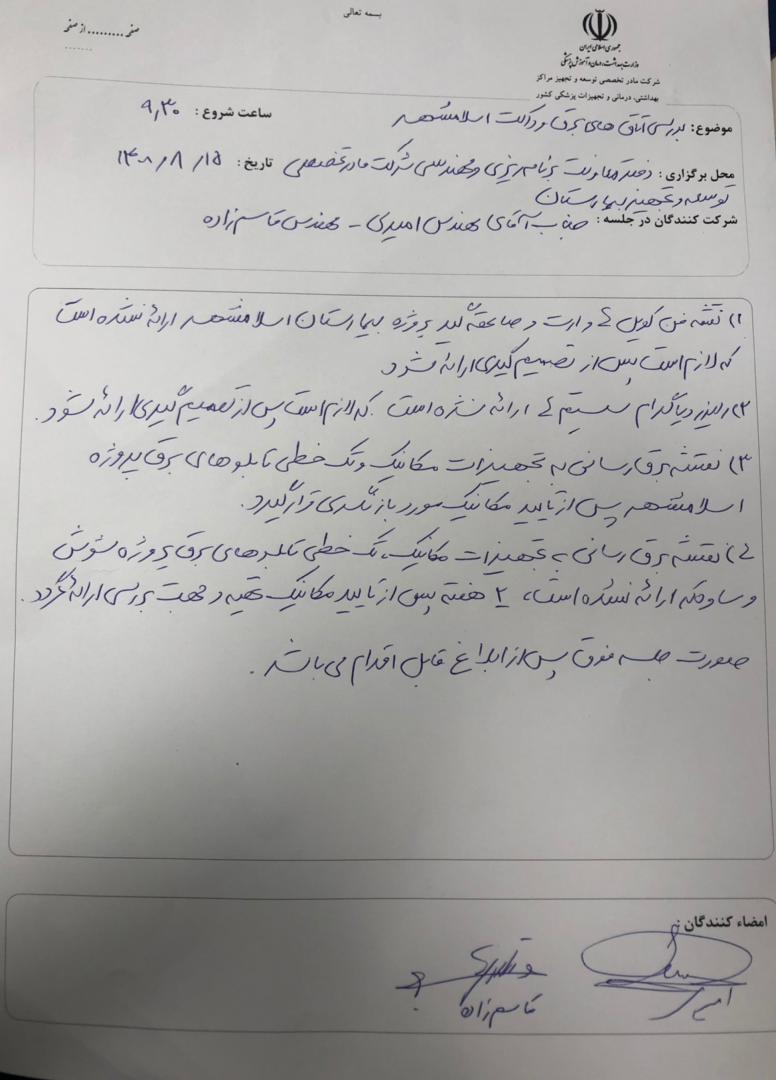 بسمه تعالی
صفحه ......... از صفحه
.......
جمهوری اسلامی ایران
وزارت بهداشت، درمان و آموزش پزشکی
شرکت مادر تخصصی توسعه و تجهیز مراکز
بهداشتی، درمانی و تجهیزات پزشکی کشور
موضوع: بررسی اتاق های برق و داکت اسلامشهر
ساعت شروع : ۹,۳۰
محل برگزاری : دفتر معاونت برنامه ریزی و مهندسی شرکت مادر تخصصی
تاریخ : ۱۴۰۰/۸/۱۵
توسعه و تجهیز بیمارستان
شرکت کنندگان در جلسه : جناب آقای مهندس امیری - مهندس قاسم زاده
۱) نقشه فن کویل ۴ وارت و صاعقه گیر پروژه بیمارستان اسلامشهر ارائه نشده است
که لازم است پس از تصمیم گیری ارائه شود
۲) رایزر دیاگرام سیستم ۴ ارائه نشده است. که لازم است پس از تصمیم گیری ارائه شود.
۳) نقشه برق رسانی به تجهیزات مکانیک و تک خطی تابلو های برق پروژه
اسلامشهر پس از تایید مکانیک مورد بازنگری قرار گیرد.
۴) نقشه برق رسانی به تجهیزات مکانیک، تک خطی تابلوهای برق پروژه شوش
و ساوه که ارائه نشده است، ۲ هفته پس از تایید مکانیک تهیه و جهت بررسی ارائه گردد.
صورت جلسه فوق پس از ابلاغ قابل اقدام می باشد.
امضاء کنندگان :
قاسم زاده